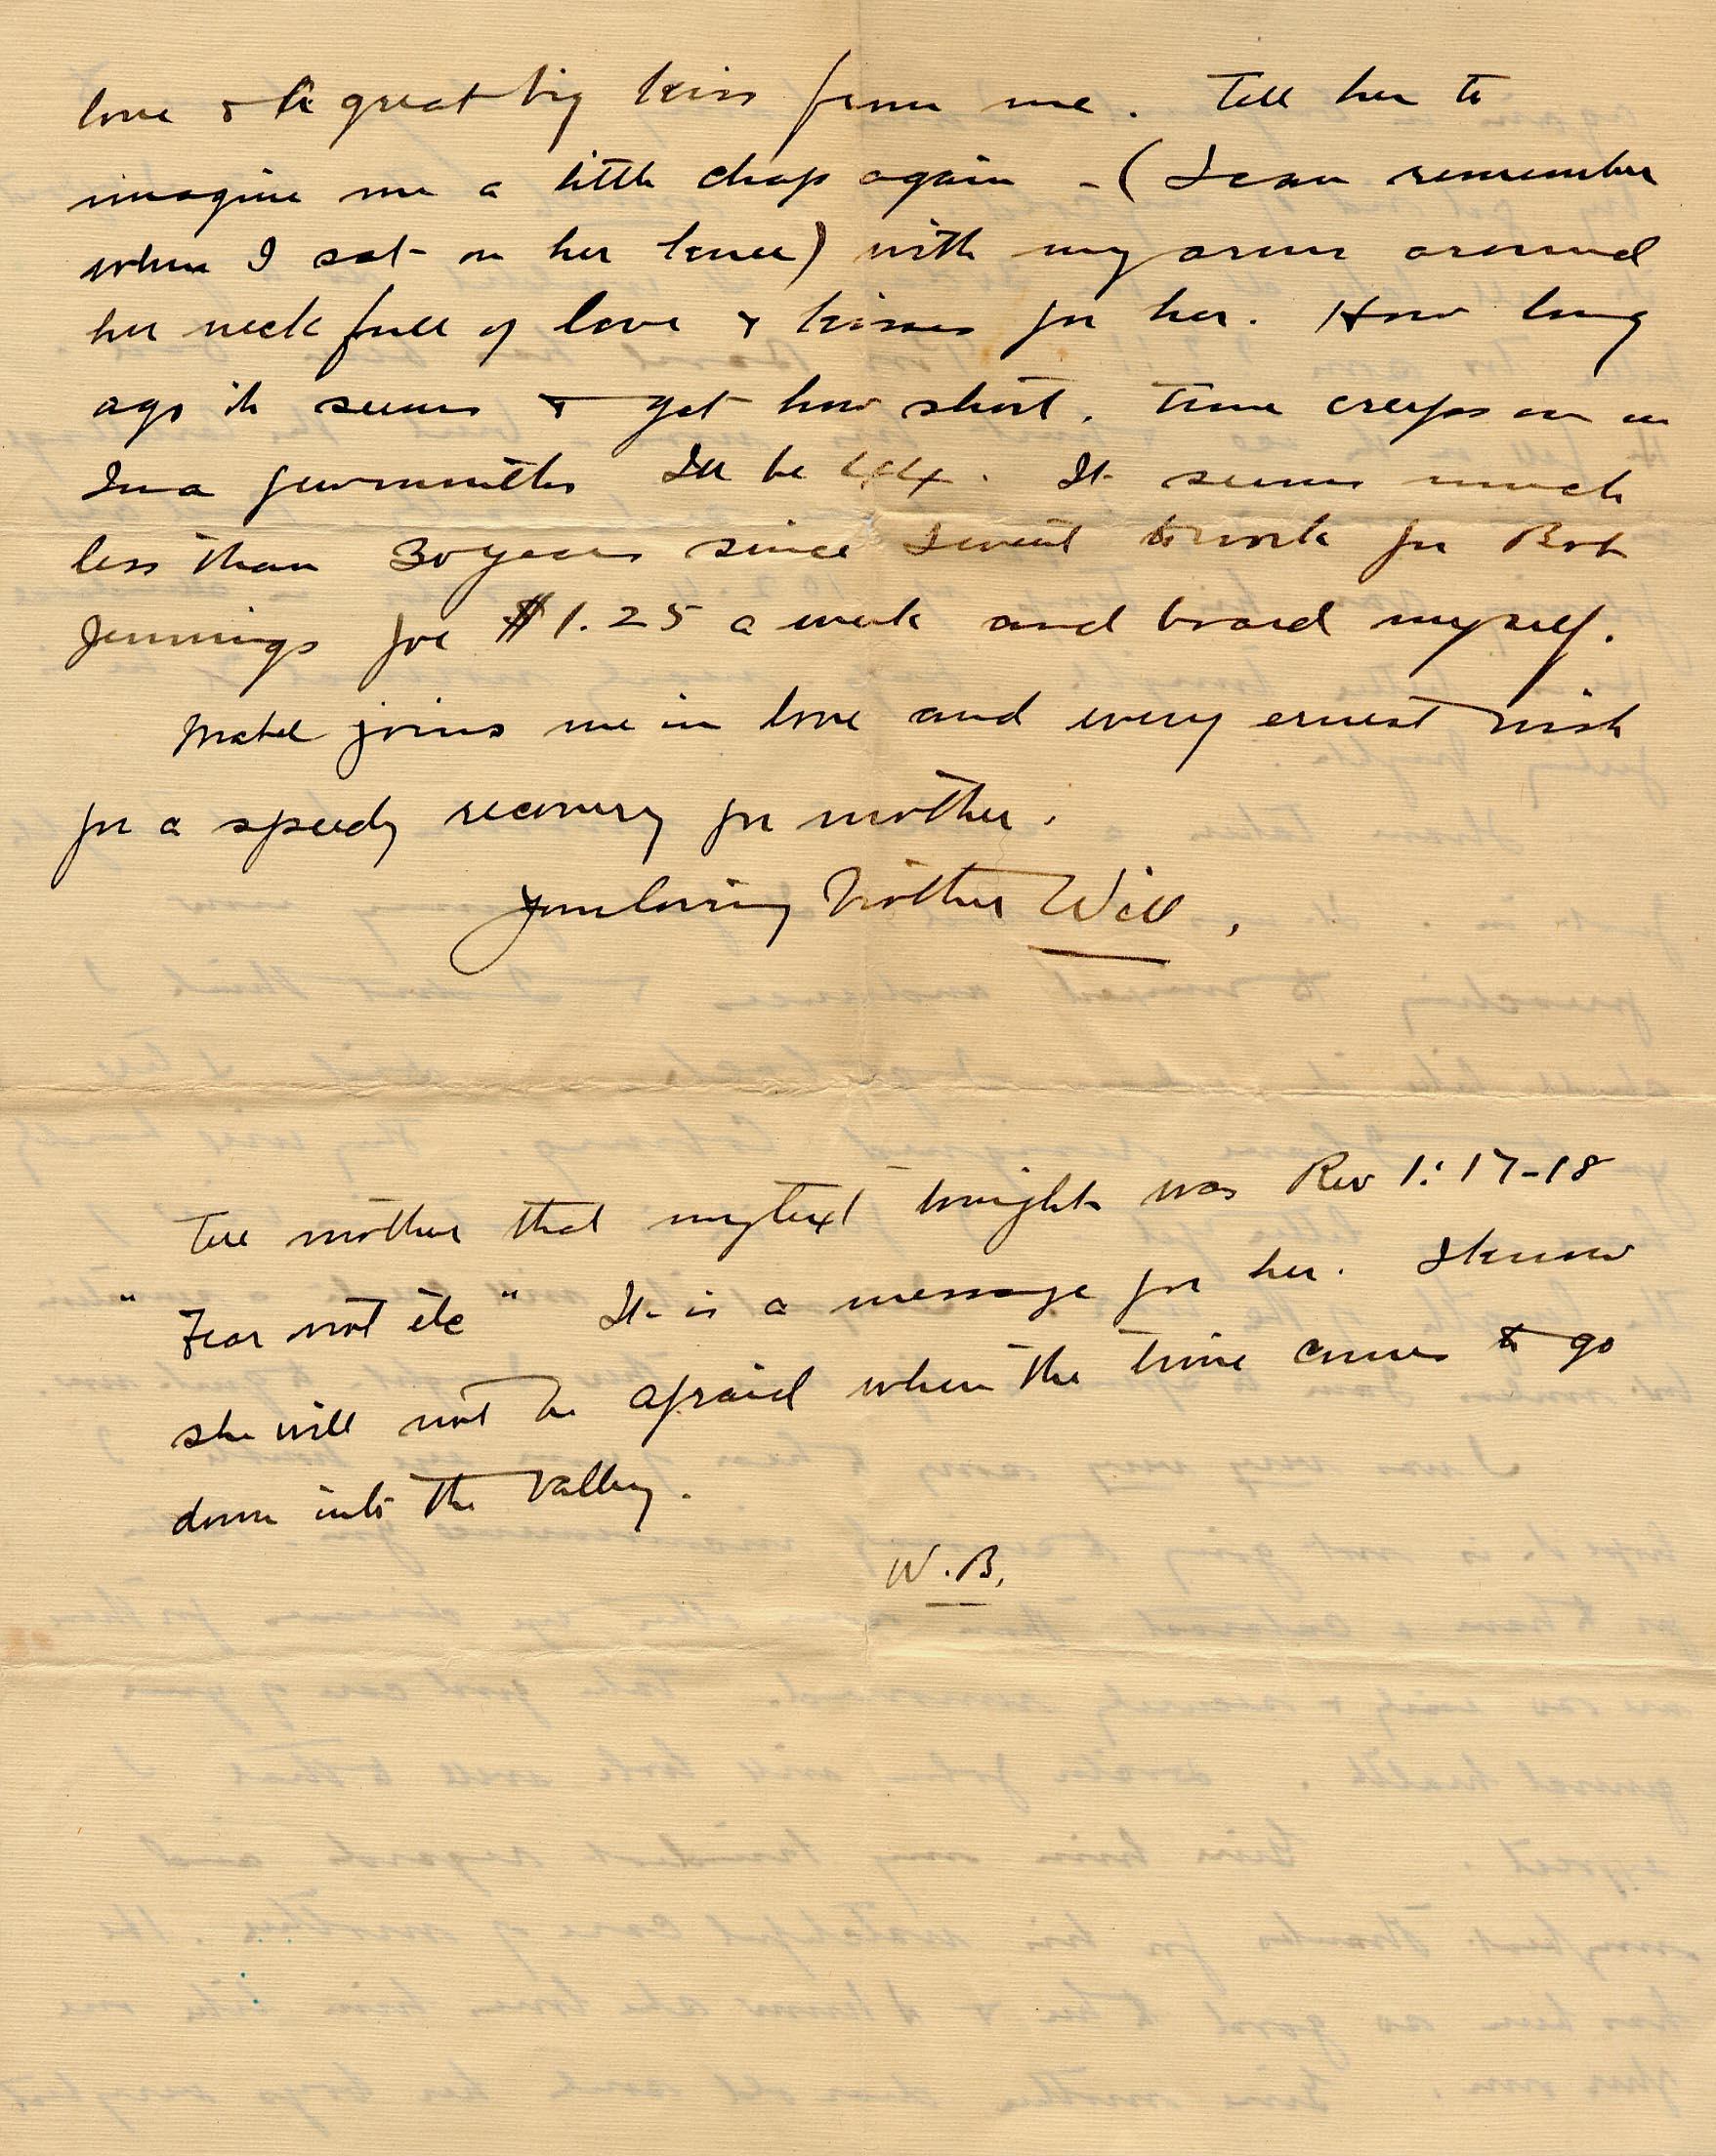 love & a great big kiss from me. Tell her to
imagine me a little chap again - (I can remember
when I sat on her knee) with my arms around
her neck full of love & kisses for her. How long
ago it seems & yet how short. Time creeps on
In a few months I'll be 44. It seems much
less than 30 years since I went to work for Bob
Jennings for $1.25 a week and board myself.
Mabel joins me in love and every ernest wish
for a speedy recovery for mother.
Your loving brother Will,
Tell mother that my text tonight was Rev 1:17-18
"Fear not etc" It is a message for her. I know
she will not be afraid when the time comes to go
down into the valley.
W.B.